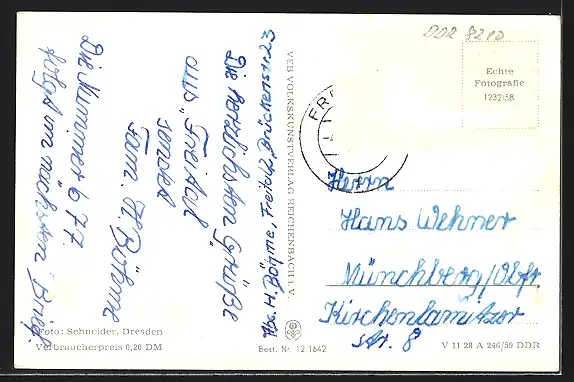 DDR 8210
Echte
Fotografie
1232158
FRE
Die herzlichsten Grüße
aus "Freital"
sendet
Fam. H. Böhme
Die Nummer 677.
folgt im nächsten Brief.
Abs. H. Böhme, Freital 2, Brückenstr. 23
VEB VOLKSKUNSTVERLAG REICHENBACH I. V.
Herrn
Hans Wehner
Münchberg/Obfr.
Kirchenlamitzer
str. 8
Foto: Schneider, Dresden
Verbraucherpreis 0,20 DM
Best. Nr. 12 1642
V 11 28 A 246/59 DDR